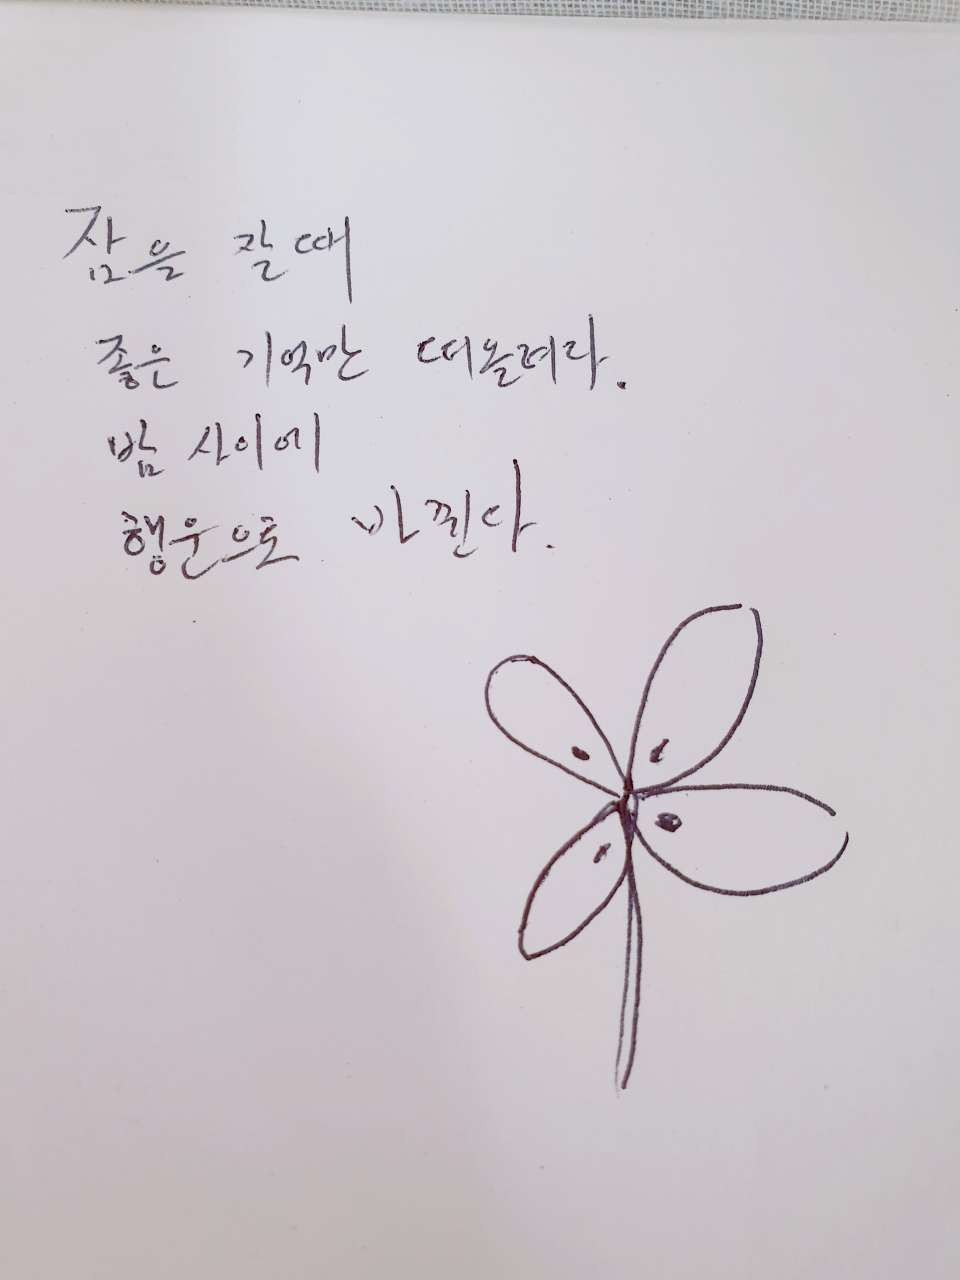 잠을 잘때
좋은 기억만 떠올려라.
밤 사이에
행운으로 바뀐다.